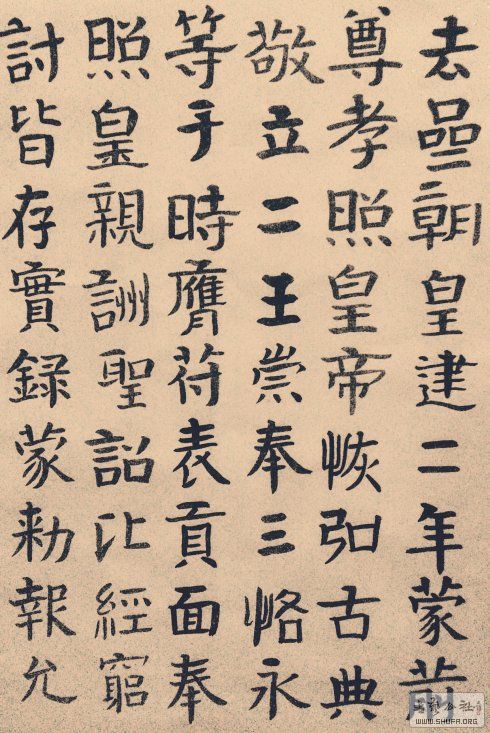 去朝皇建二年蒙
尊孝照皇帝恢弘古典
敬立二王崇奉三恪永
等于時膺苻表貢面奉
照皇親詶聖詔比經窮
討皆存實録蒙勑報允
WWW.SHUFA.ORG